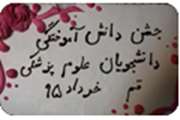 جشن دانش آموختگی
دانشجویان علوم پزشکی
قم خرداد ۹۵